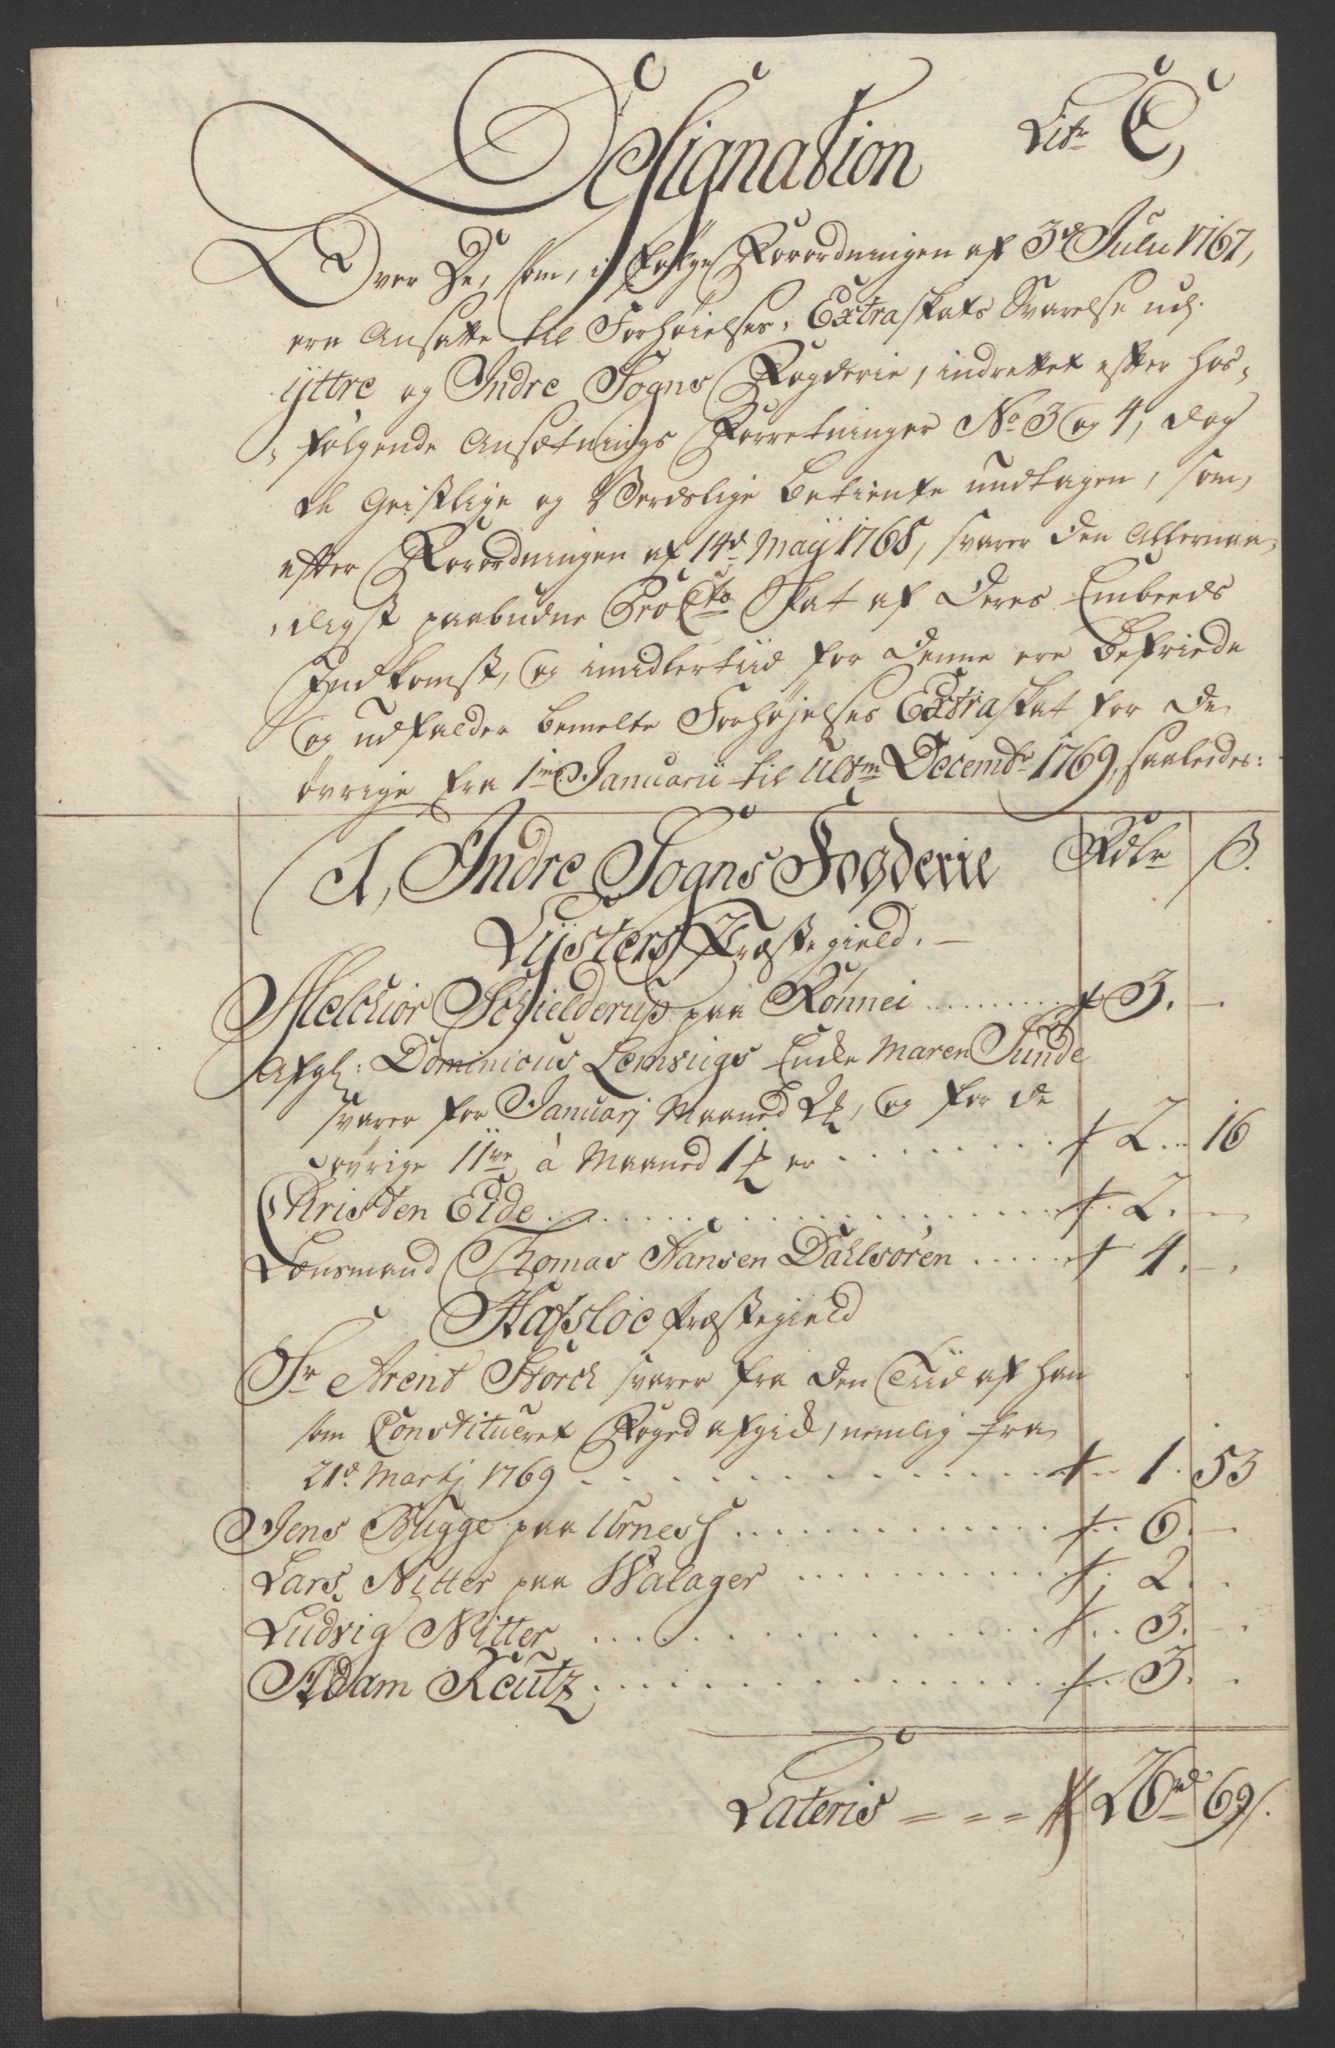 Litr C,
Designation
Over De, som, i følge Forordningen af 3d Julii 1767,
ere Ansatte til Forhøielses, Extraskats Svarelse udj
ÿttre og Indre Sogns Fogderie, indrettet efter hos-
følgende Ansætnings Forretninger No 3 og 4, dog
de Geistlige og Verdslige Betiente undtagen, som,
efter Forordningen af 14d Maij 1768, svarer den Allernaa-
digst paabudne Pro Cto Skat af deres Embeds
Indkomst, og imidlertiid for denne ere Befriede
og udfalder bemelte Forhøjelses Extraskat for de
øvrige fra 1me Januarii til Ultm Decembr 1769, saaledes:
A, Indre Sogns Fogderie Rdlr ß.
Lÿsters Præstegield.
Melchior Schielderup paa Rønnei 3. -
Afgl: Dominicus Lemvigs Enke Maren Sunde
svarer for Januarj Maaned, og for de
øvrige 11ve à Maaned er 2 16
Christen Eide 2. -
Lensmand Thomas Hansen Dahlsøren 4. -
Hafsloe Præstegield
Sr Arent Storch svarer fra den Tiid af han
som Constitueret Foged afgik, nemlig fra
21d Martj 1769 1. 53
Jens Bugge paa Urnes 6. -
Lars Nitter paa Walager 2. -
Ludvig Nitter 3. -
Adam Reutz 3. -
Lateris 26rd 69ß.